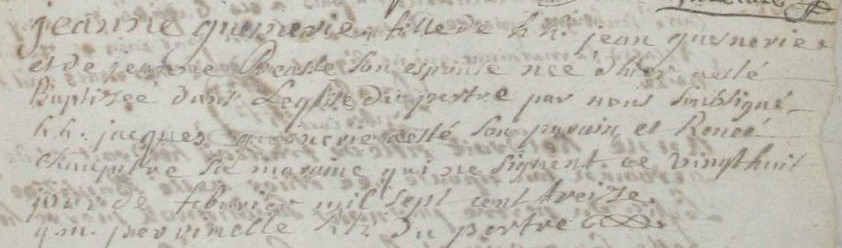 jeanne quenerie fille de h h. jean quenerie
et de jeanne son espouse nee d'hier a esté
Baptizeé dans L'eglise du pertre par nous Soubsigné
h h. jacques quenerie a esté Son parain et Reneé
Champitre Sa maraine qui ne Signent. ce vingt huit
jour de febvrier mil sept cent treize.
du pertre